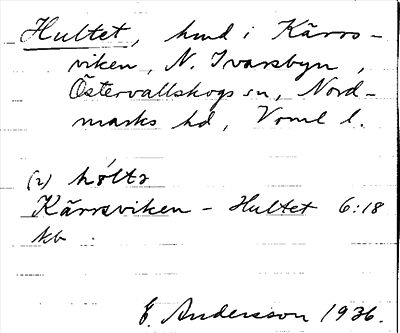 Hultet, hmd i Kärrs-
viken, N. Ivarsbyn,
Östervallskogs sn, Nord-
marks hd, Vrml l.
(2) hólta
Kärrsviken - Hultet 6:18
kb
E. Andersson 1936.